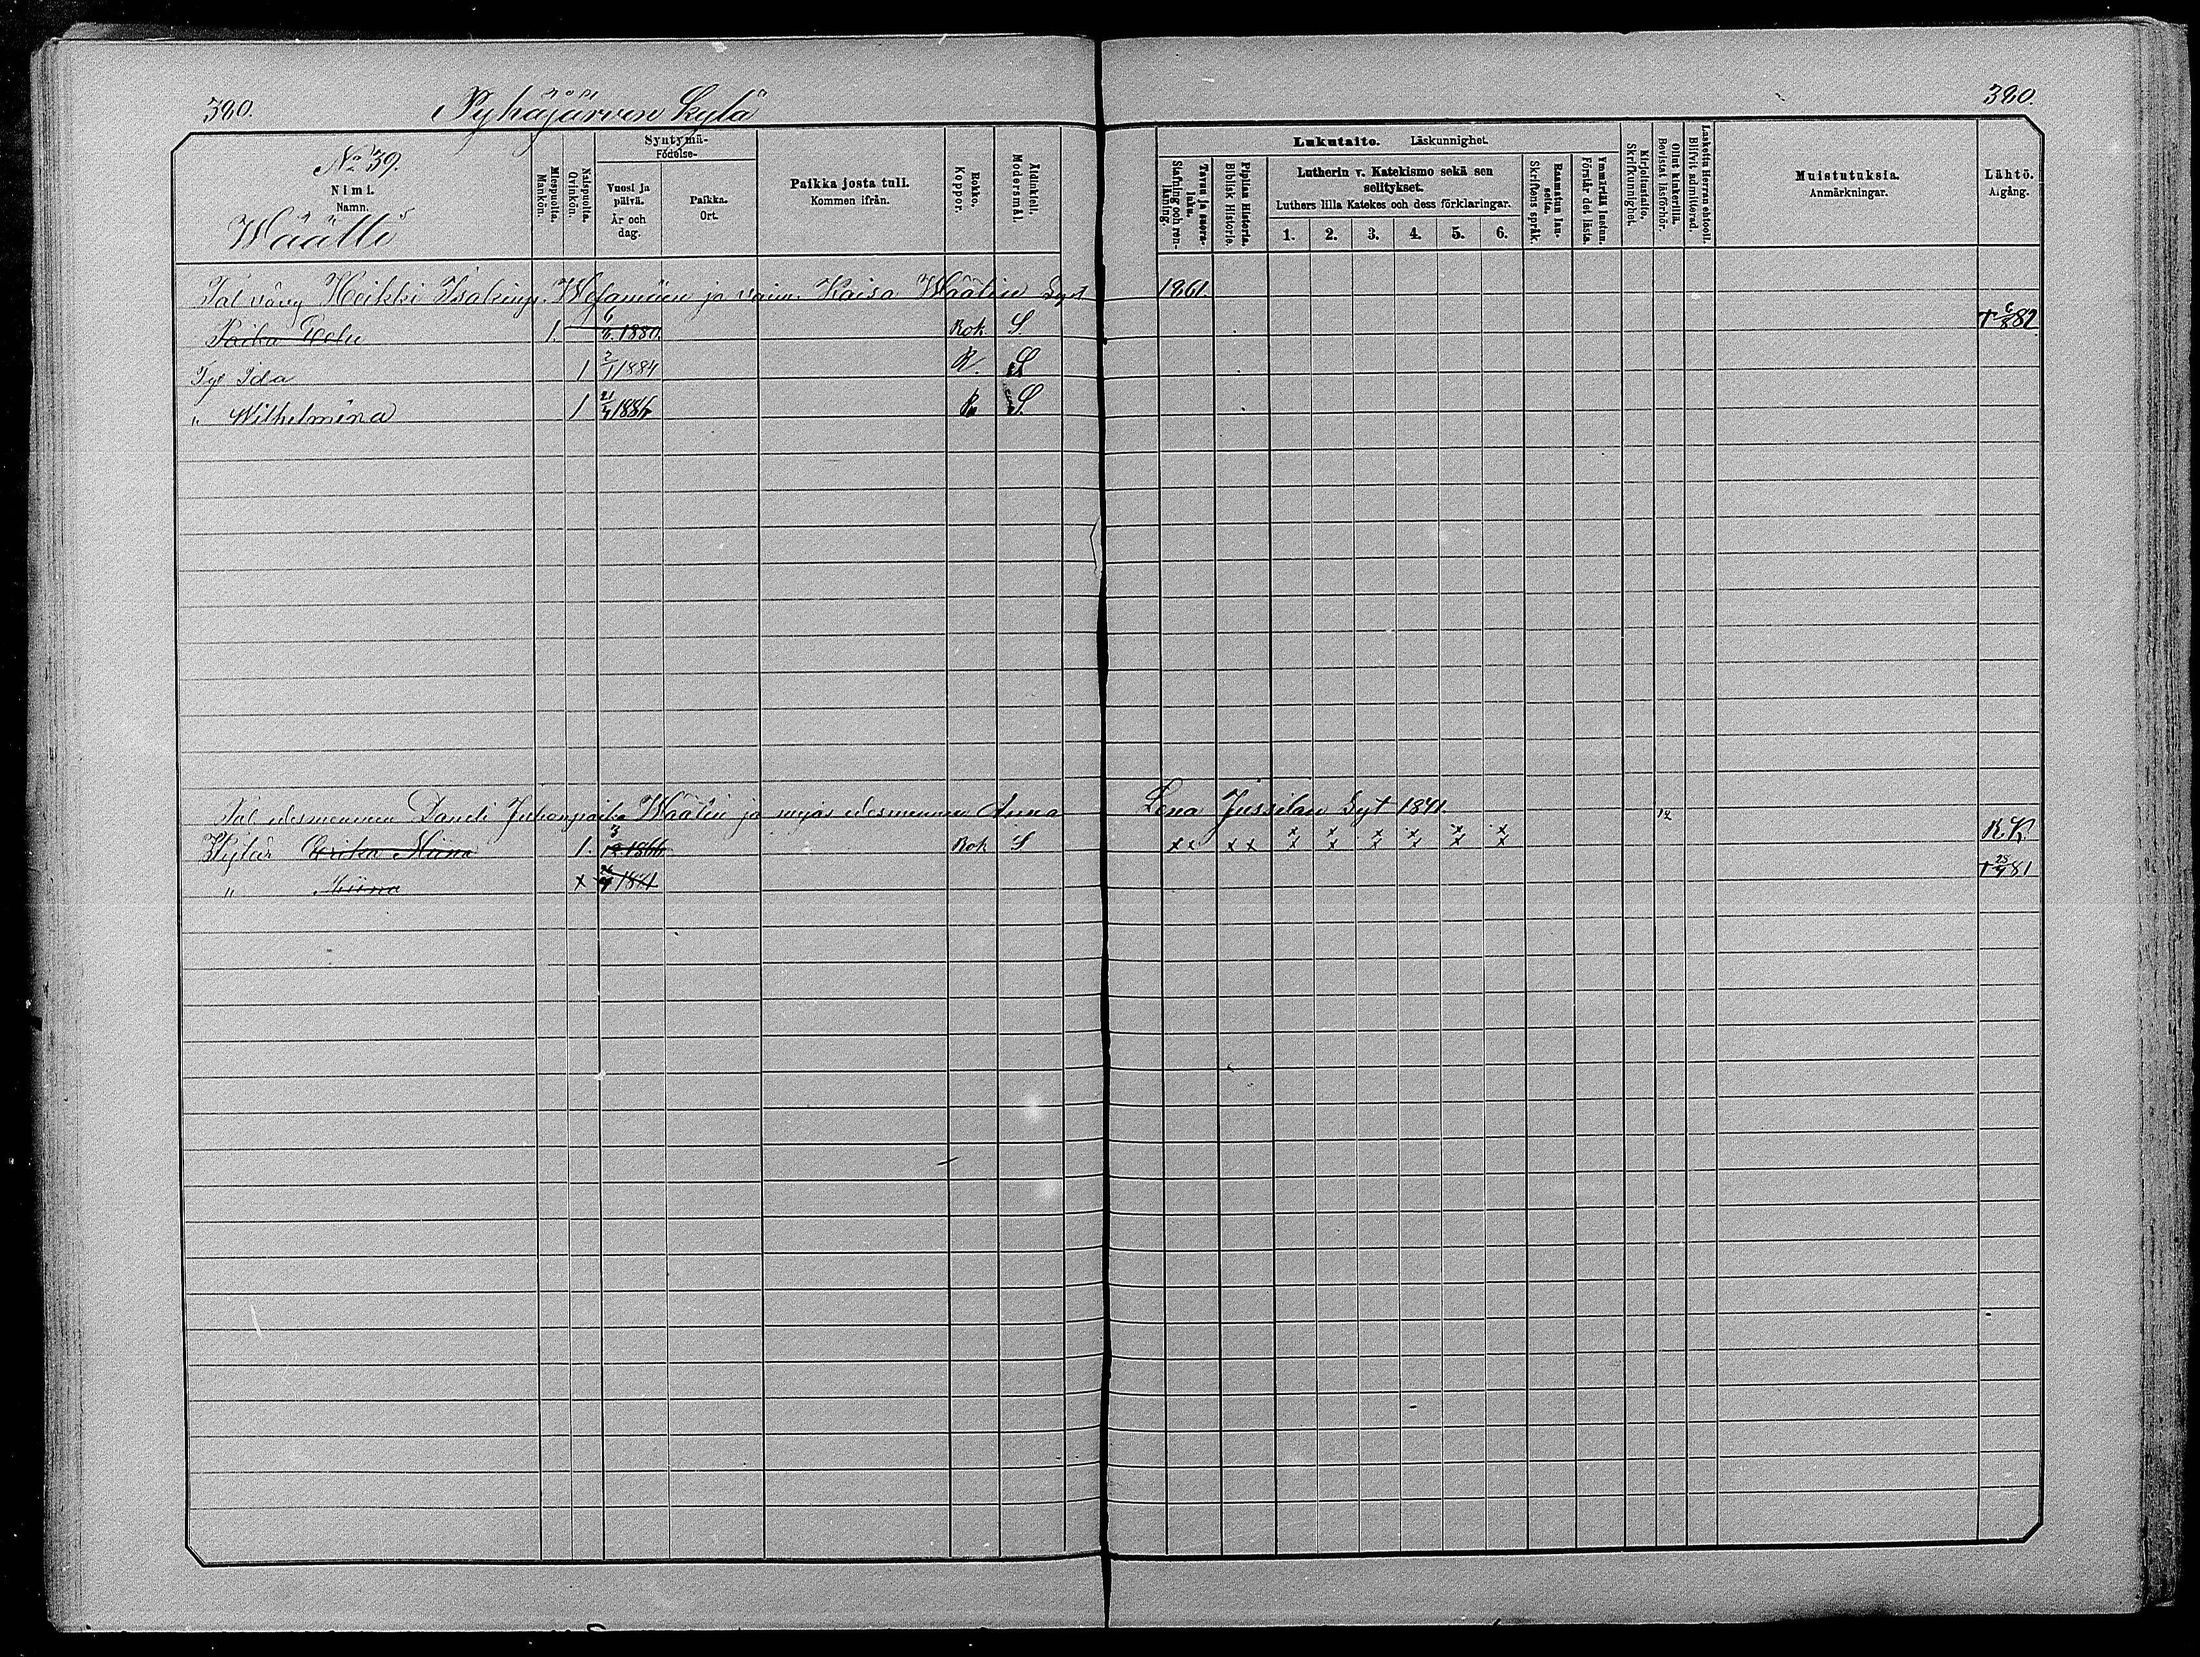 380.
Pyhäjärven kylä
380.
No 39.
Nimi.
Namn.
Wäätti
Miespuolta.
Mankön.
Naispuolta.
Qvinkön.
Syntymä-
Födelse-
Vuosi ja päivä.
År och dag.
Paikka.
Ort.
Paikka josta tuli.
Kommen ifrån.
Rokko.
Koppor.
Äidinkieli.
Modersmål.
Lukutaito. Läskunnighet.
Tavuu ja suora-luku.
Stafning och ren-läsning.
Piplian Historia.
Biblisk Historie.
Lutherin v. Katekismo sekä sen selitykset.
Luthers lilla Katekes och dess förklaringar.
1. 2. 3. 4. 5. 6.
Raamatun lauseita.
Skriftens språk.
Ymmärtää luetun.
Förstår det lästa.
Kirjoitustaito.
Skrifkunnighet.
Ollut kinkerillä.
Bevistat läsförhör.
Laskettu Herran ehtooll.
Blifvit admitterad.
Muistutuksia.
Anmärkningar.
Lähtö.
Afgång.
Tal vävy Heikki Isakinp. ja vaim. Kaisa Wäätin Syt 1861.
Poika 1. 6 1880. Rok S † 6/8 82
Tyt Ida 1 2/1 1884 R. S
" Wilhelmina 1 21/4 1886 R S.
Tal edesmennen Daneli Juhonpoika Wäätin ja myös edesmennen Anna Lena Jussilan Syt 1841. 12
Tytär Erika Mina 1. 3/12 1866 Rok S xx xx x x x x x x x x x x x x R.K
" Miina x 1874 † 23/4 81